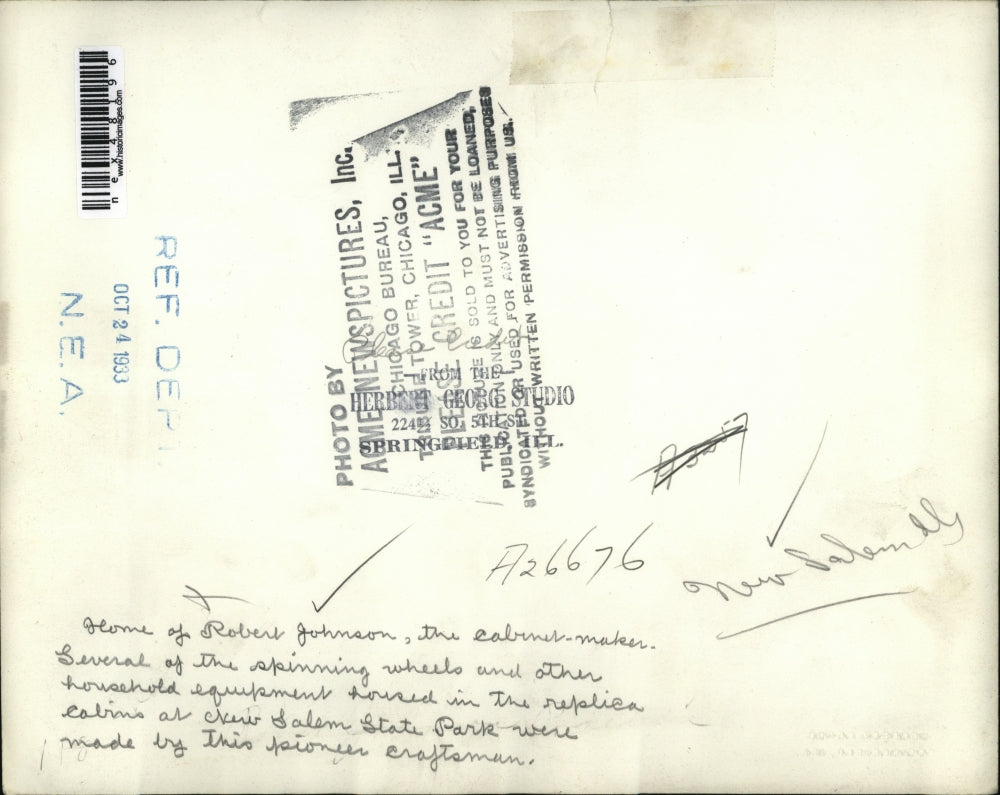 nex48196
www.historicimages.com
REF. DEPT.
OCT 24 1933
N.E.A.
PHOTO BY
ACME NEWSPICTURES, Inc.
CHICAGO BUREAU,
TRIBUNE TOWER, CHICAGO, ILL.
PLEASE CREDIT "ACME"
THIS PICTURE IS SOLD TO YOU FOR YOUR
PUBLICATION ONLY AND MUST NOT BE LOANED,
SYNDICATED OR USED FOR ADVERTISING PURPOSES
WITHOUT WRITTEN PERMISSION FROM US.
FROM THE
HERBERT GEORG STUDIO
SO. 5TH ST.
SPRINGFIELD, ILL.
A26676
New Salem Ill
Home of Robert Johnson, the cabinet-maker.
Several of the spinning wheels and other
household equipment housed in the replica
cabins at New Salem State Park were
made by this pioneer craftsman.